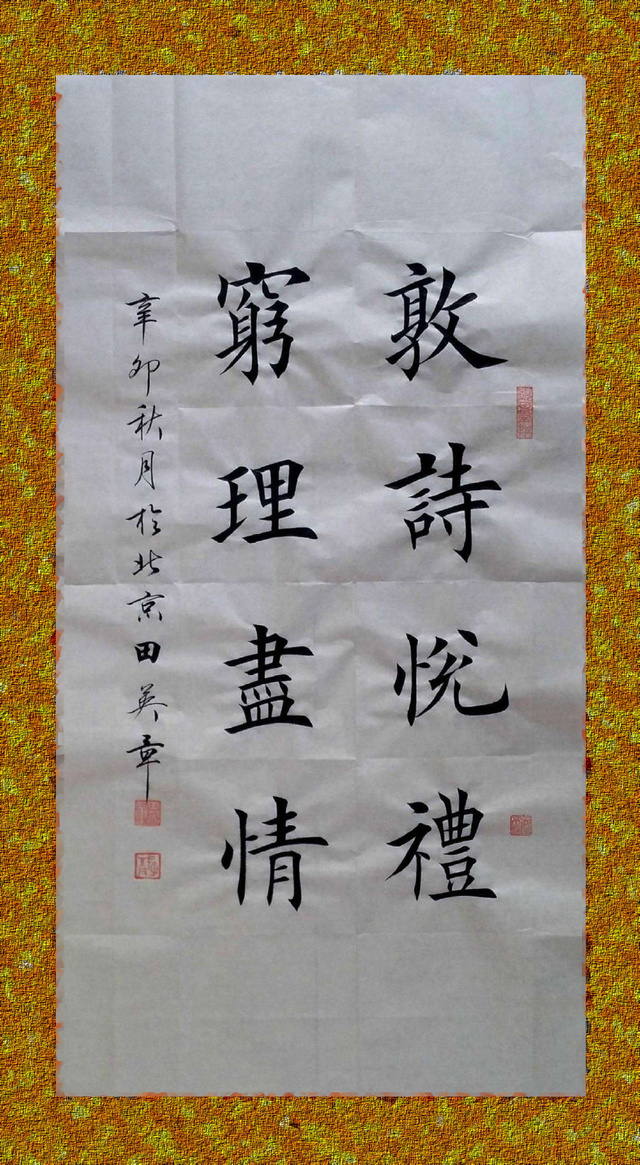 敦詩悦禮
窮理盡情
辛卯秋月於北京田英章